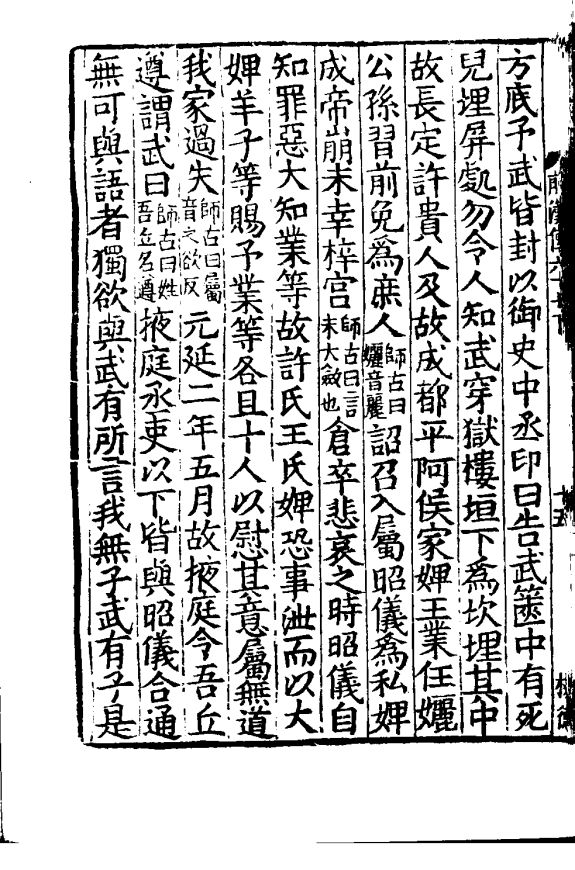 方底予武皆封以御史中丞印曰告武篋中有死
兒埋屏處勿令人知武穿獄樓垣下爲坎埋其中
故長定許貴人及故成都平阿侯家婢王業任孋
公孫習前免爲庶人師古曰孋音麗詔召入屬昭儀爲私婢
成帝崩未幸梓宫師古曰言未大斂也倉卒悲哀之時昭儀自
知罪惡大知業等故許氏王氏婢恐事泄而以大
婢羊子等賜予業等各且十人以慰其意屬無道
我家過失師古曰屬音之欲反元延二年五月故掖庭令吾丘
遵謂武曰師古曰姓吾丘名遵掖庭丞吏以下皆與昭儀合通
無可與語者獨欲與武有所言我無子武有子是